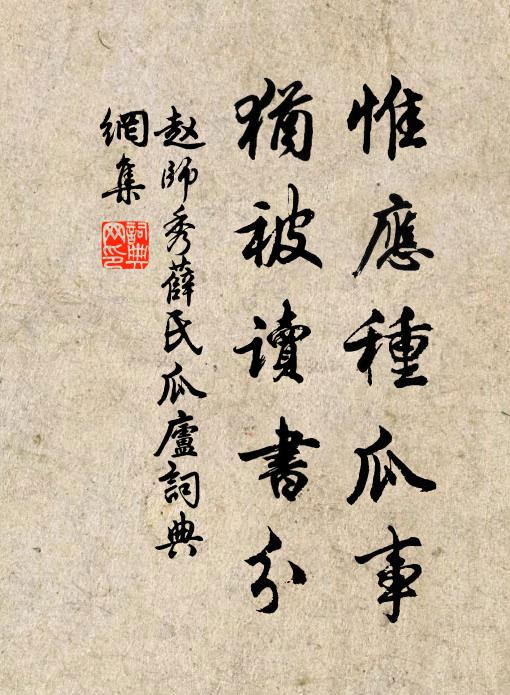 惟應種瓜事
猶被讀書分
赵師秀薛氏瓜廬詞典
網集
詞典
网印